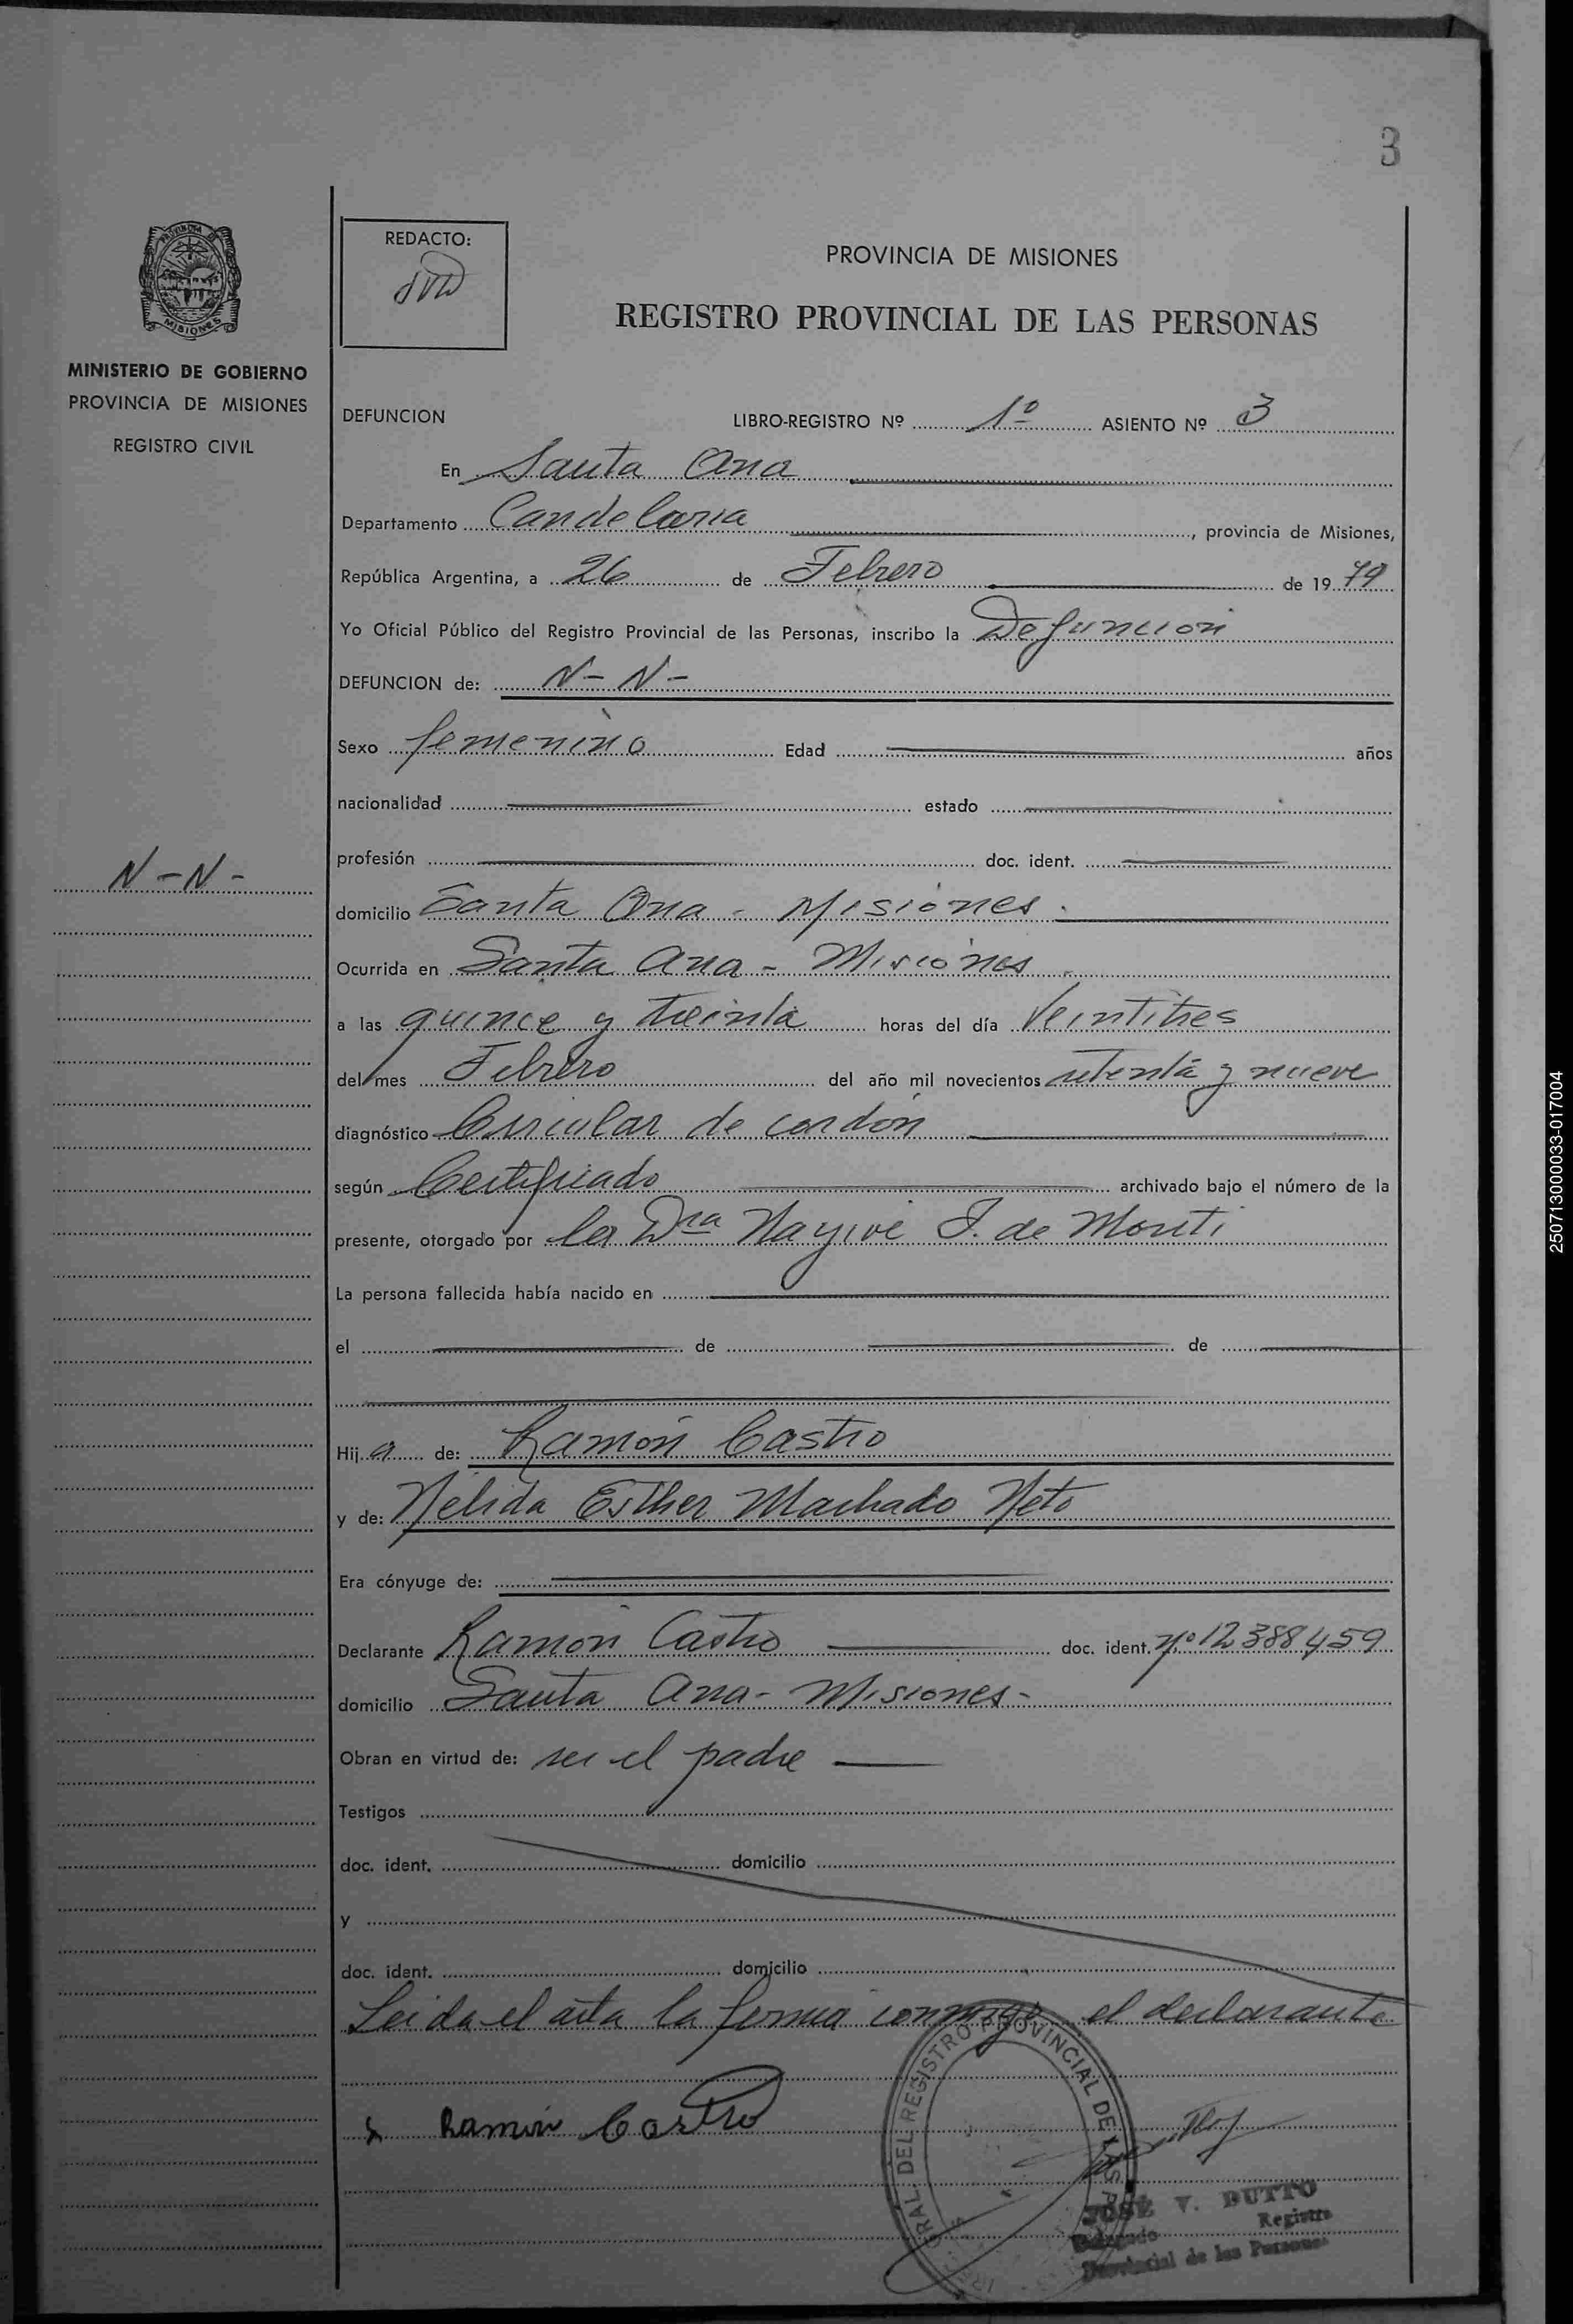 3
REDACTO:
PROVINCIA DE MISIONES
REGISTRO PROVINCIAL DE LAS PERSONAS
MISIONES
MINISTERIO DE GOBIERNO
PROVINCIA DE MISIONES
REGISTRO CIVIL
DEFUNCION LIBRO-REGISTRO Nº 1º ASIENTO Nº 3
En Santa Ana
Departamento Candelaria, provincia de Misiones,
República Argentina, a 26 de Febrero de 1979
Yo Oficial Público del Registro Provincial de las Personas, inscribo la Defuncion
DEFUNCION de: N- N-
Sexo femenino Edad años
nacionalidad estado
profesión doc. ident.
N-N-
domicilio Santa Ana - Misiones.
Ocurrida en Santa Ana - Misiones
a las quince y treinta horas del día Veintitres
del mes Febrero del año mil novecientos setenta y nueve
diagnóstico Circular de cordón
según Certificado archivado bajo el número de la
presente, otorgado por la Dra Nayive J. de Monti
La persona fallecida había nacido en
el de de
Hija de: Ramón Castro
y de: Nelida Esther Machado Neto
Era cónyuge de:
Declarante Ramón Castro doc. ident. Nº 12388459
domicilio Santa Ana - Misiones-
Obran en virtud de: ser el padre
Testigos
doc. ident. domicilio
y
doc. ident. domicilio
Leida el acta la firma conmigo el declarante
x Ramón Castro
GRAL. DEL REGISTRO PROVINCIAL DE LAS P
JOSÉ V. DUTTO
Delegado Registro
Provincial de las Personas
250713000033-017004